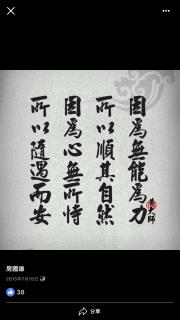 因為無能為力
所以順其自然
因為心無所恃
所以隨遇而安
大師
房國雄
2015年7月15日
38
分享